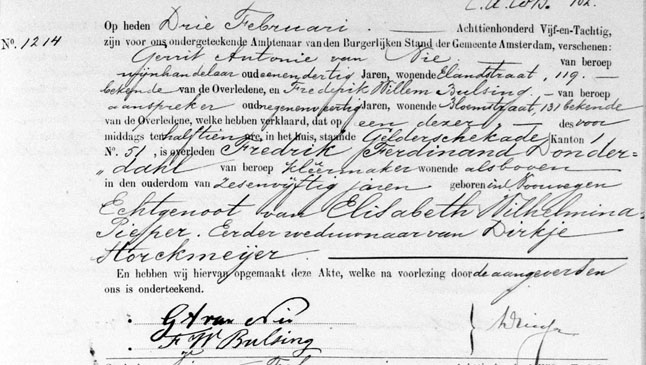 Op heden Drie Februari. Achttienhonderd Vijf-en-Tachtig,
No. 1214
zijn voor ons ondergeteekende Ambtenaar van den Burgerlijken Stand der Gemeente Amsterdam, verschenen:
Gerrit Antonie van Nie van beroep
wijnhandelaar oud eenendertig Jaren, wonende Elandstraat, 119.
bekende van de Overledene, en Frederik Willem Bulsing van beroep
aanspreker oud negenenveertig Jaren, wonende Bloemstraat 131 bekende
van de Overledene, welke hebben verklaard, dat op een dezer des voor
middags ten half tien ure, in het huis, staande Gelderschekade Kanton 1
No. 51, is overleden Fredrik Ferdinand Donder-
„dahl van beroep kleermaker wonende als boven
in den ouderdom van zesenvijftig jaren geboren in Noorwegen
Echtgenoot van Elisabeth Wilhelmina
Pieper. Eerder weduwnaar van Dirkje
Storckmeijer.
En hebben wij hiervan opgemaakt deze Akte, welke na voorlezing door de aangevers en
ons is onderteekend.
G A van Nie
F W Bulsing